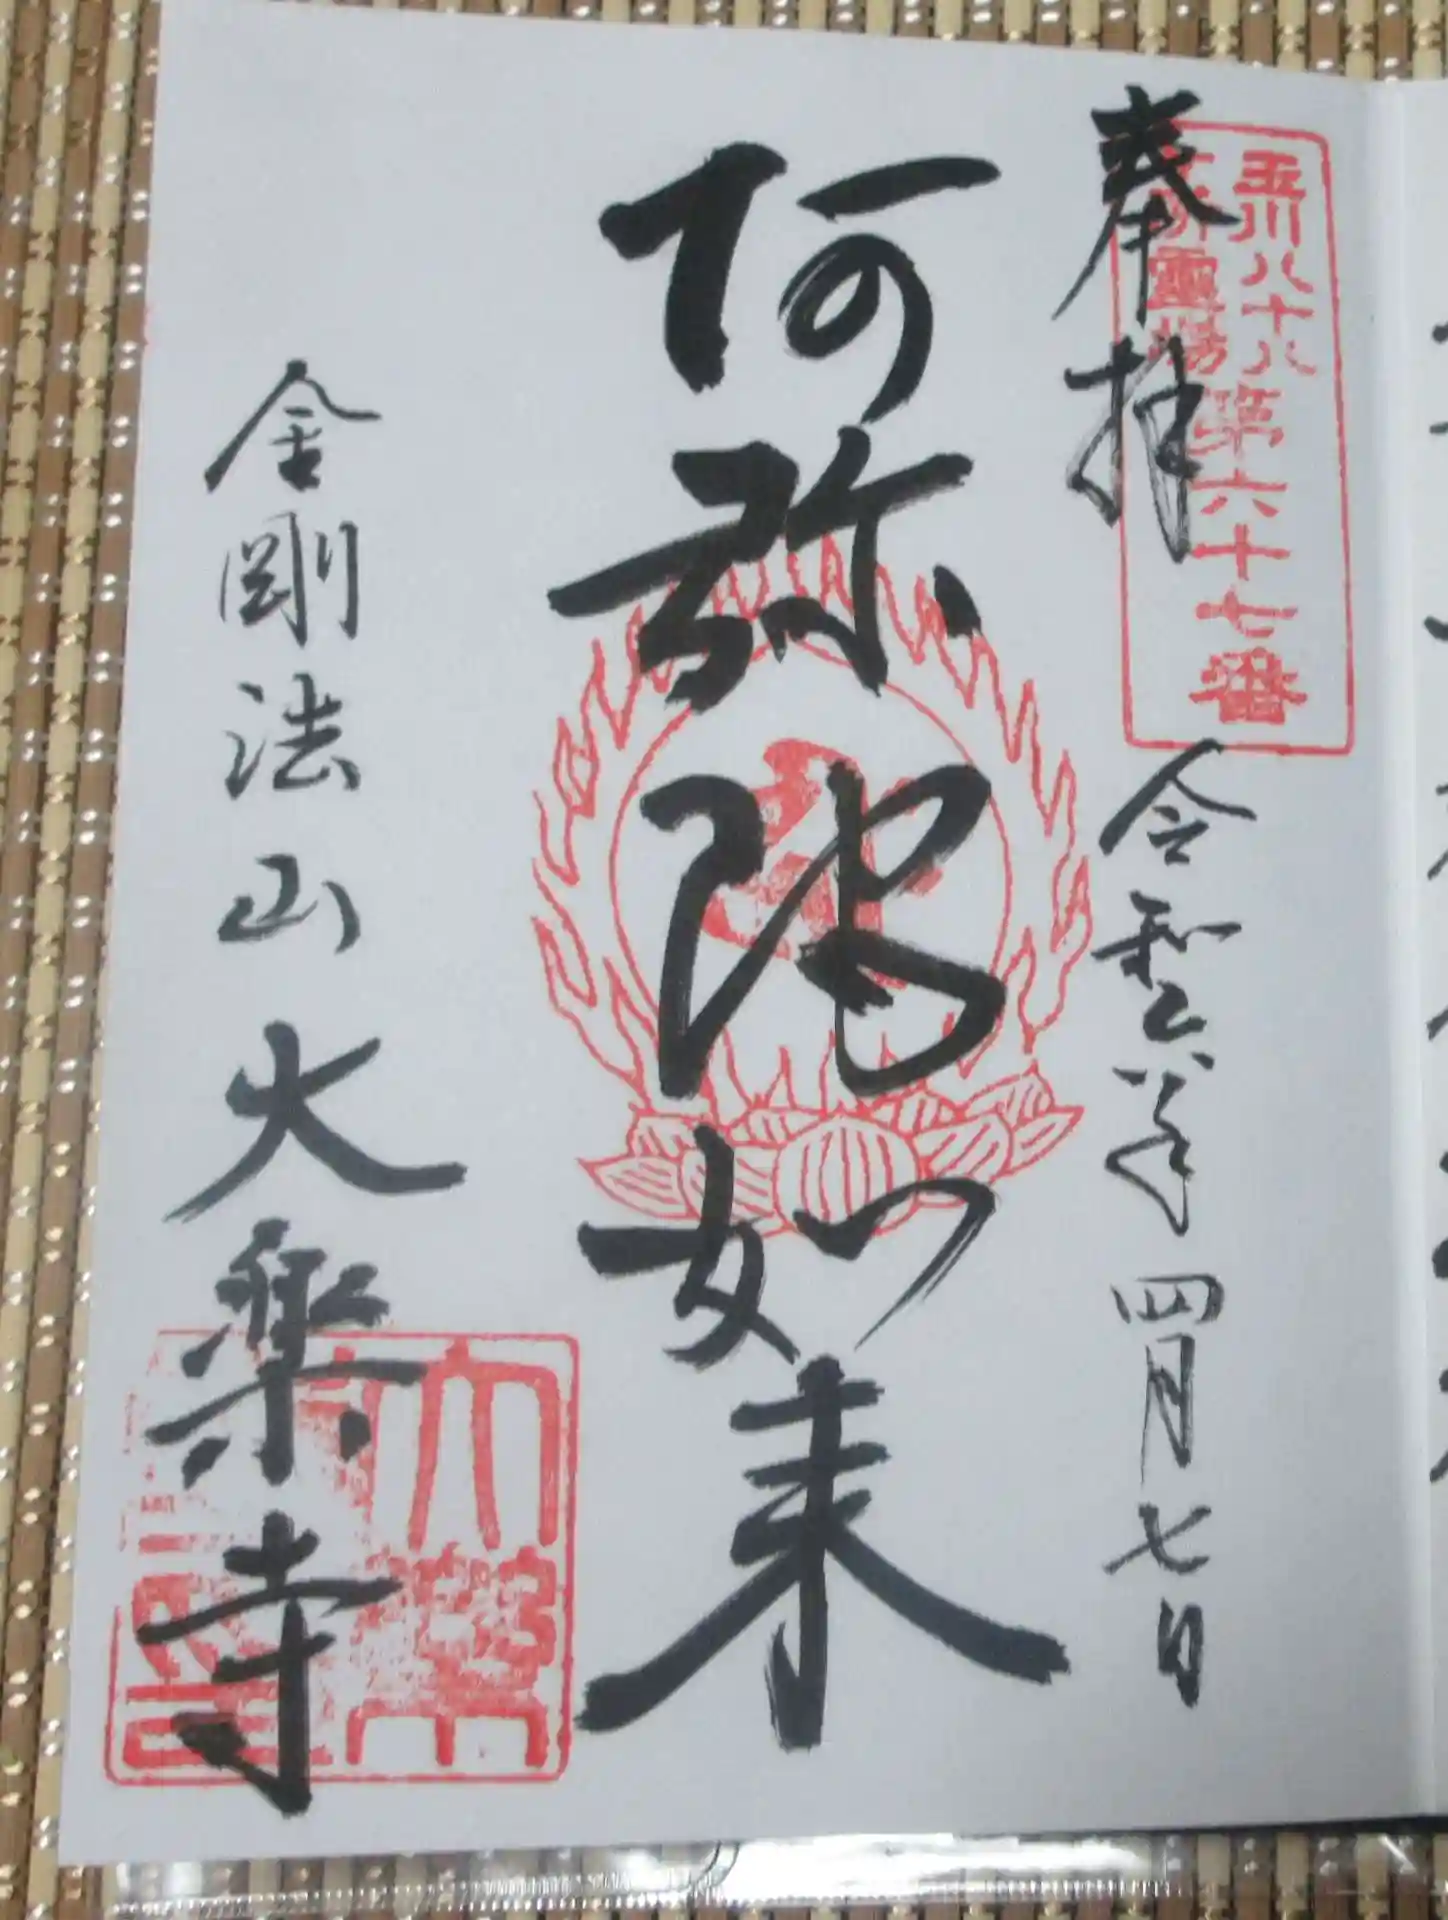 奉拝
玉川八十八
ヶ所霊場
第六十七番
令和六年四月七日
阿弥陀如来
金剛法山大楽寺